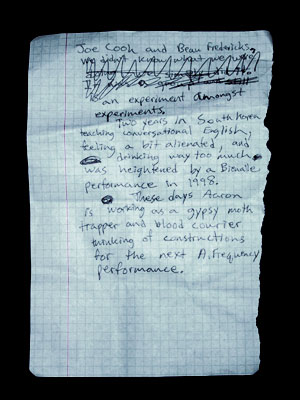 Joe Cook and Beau Fredericks,
we didn't know what we were
an experiment amongst
experiments.
Two years in South Korea
teaching conversational English,
feeling a bit alienated, and
drinking way too much
was heightened by a Bionulle
performance in 1998.
These days Aaron
is working as a gypsy moth
trapper and blood courier
thinking of constructions
for the next A.frequency
performance.